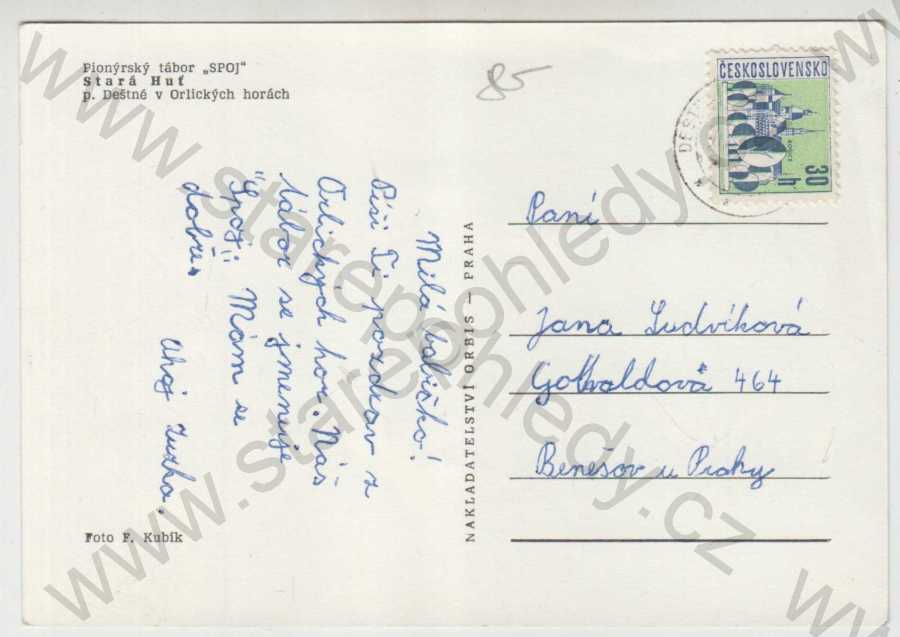 Pionýrský tábor „SPOJ"
Stará Huť
p. Deštné v Orlických horách
85
ČESKOSLOVENSKO
30
h
Milá babičko!
Píši Ti pozdrav z
Orlických hor. Náš
tábor se jmenuje
"Spoj". Mám se
dobře.
Ahoj Zuzka.
NAKLADATELSTVÍ ORBIS — PRAHA
Paní
Jana Ludvíková
Gottwaldova 464
Benešov u Prahy
Foto F. Kubík
www.starepohledy.cz
www.starepohledy.cz